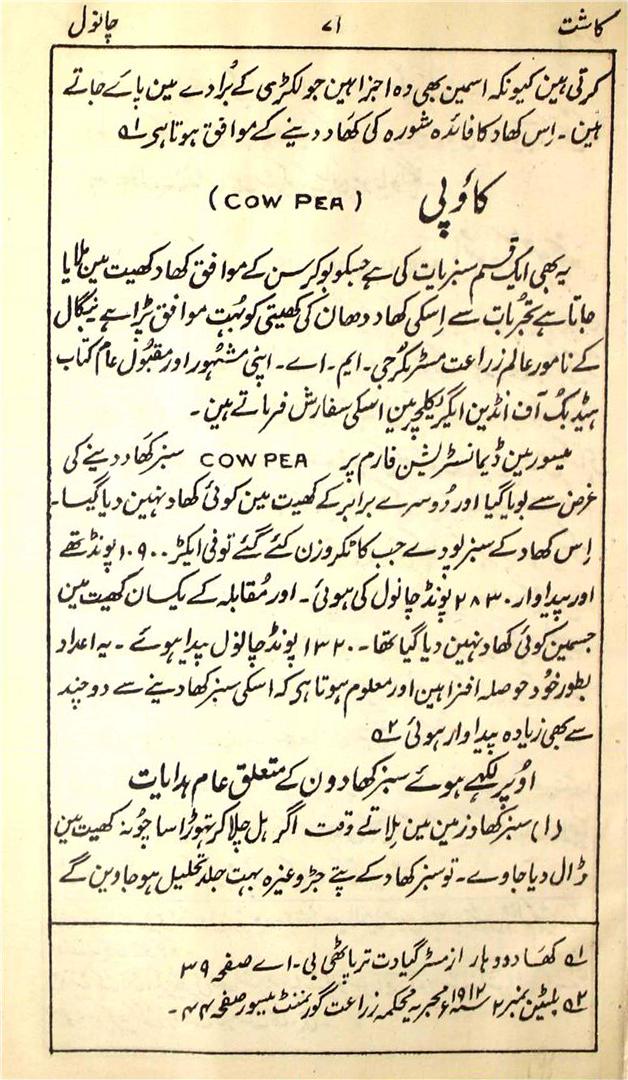 کاشت ۷۱ چانول
کرتی ہین کیونکہ اسمین بھی وہ اجزا ہین جو لکڑی کے بُرادے مین پائے جاتے
ہین ۔ اِس کھاد کا فائدہ شورہ کی کھاد دینے کے موافق ہوتا ہی ۱؎
کاؤپی (COW PEA)
یہ بھی ایک قسم سبزیات کی ہے جسکو بو کر سن کے موافق کھاد کھیت مین ملایا
جاتا ہے تجربات سے اِسکی کھاد دھان کی کھیتی کو بہُت موافق پڑا ہے بنگال
کے نامور عالم زراعت مسٹر مکرُجی ۔ ایم ۔ اے ۔ اپنی مشہُور اور مقبُول عام کتاب
ہینڈ بُک آف انڈین ایگریکلچر مین اسکی سفارش فرماتے ہین ۔
میسور مین ڈیمانسٹریشن فارم پر COW PEA سبز کھَاد دینے کی
غرض سے بویا گیا اور دُوسرے برابر کے کھیت مین کوئی کھاد نہین دیا گیا ۔
اِس کھاد کے سبز پودے جب کاٹکر وزن کئے گئے تو فی ایکڑ ۱۰۹۰۰ پونڈ تھے
اور پیداوار ۲۸۳۰ پونڈ چانول کی ہوئی ۔ اور مُقابلہ کے یکسان کھیت مین
جسمین کوئی کھاد نہین دیا گیا تھا ۔ ۱۳۲۰ پونڈ چانول پیدا ہوئے ۔ یہ اعداد
بطور خُود حوصلہ افزا ہین اور معلوم ہوتا ہی کہ اسکی سبز کھاد دینے سے دو چند
سے بھی زیادہ پیداوار ہوئی ۲؎
اُوپر لکھے ہوئے سبز کھادون کے متعلق عام ہدایات
(۱) سبز کھاد زمین مین ملاتے وقت اگر ہل چلا کر تھوڑا سا چُونہ کھیت مین
ڈال دیا جاوے ۔ تو سبز کھاد کے پتے جڑ وغیرہ بہت جلد تحلیل ہو جاوین گے
۱؎ کھَاد دوہار از مسٹر گیادت ترپاٹھی بی ۔ اے صفحہ ۳۹
۲؎ بلیٹین نمبر ۲ سنہ ۱۹۱۲ء مجریہ محکمہ زراعت گورنمنٹ میسور صفحہ ۴۴ ۔